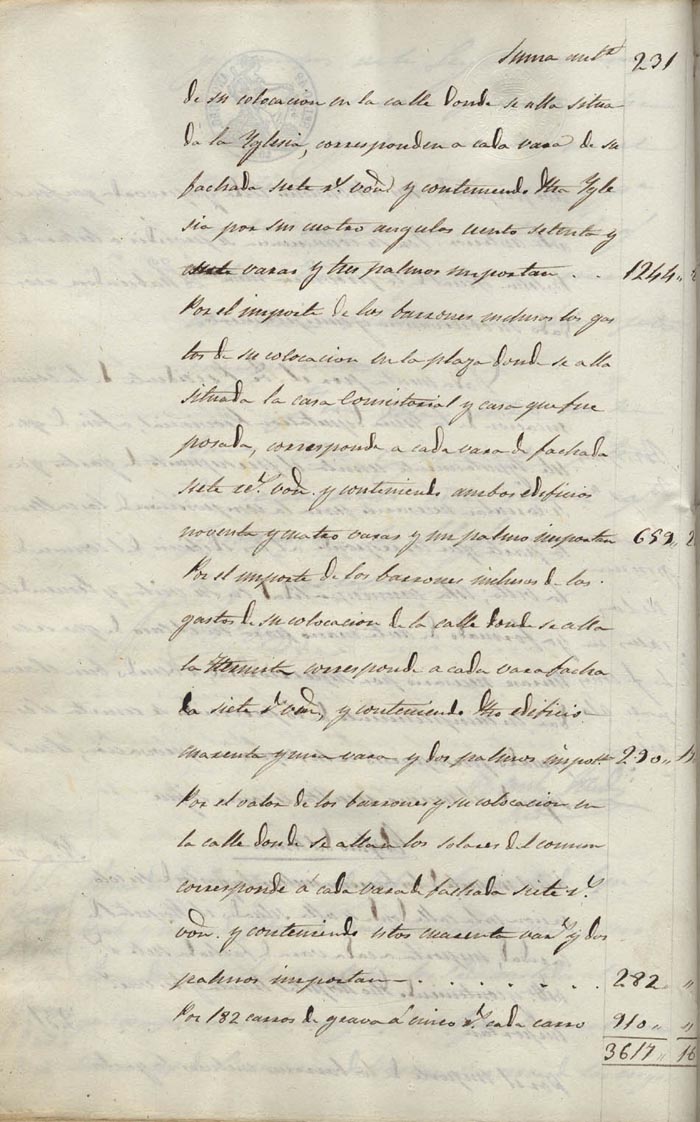 Suma antr. 231
de su colocacion en la calle donde se alla situa
da la Yglesia, corresponden a cada vara de su
fachada siete rs. von y conteniendo dha Ygle
sia por sus cuatro angulos ciento setenta y
siete varas y tres palmos importan . . 1244 „
Por el importe de los barrones inclusos los gas
tos de su colocacion en la plaza donde se alla
situada la casa Consistorial y casa que fue
posada, corresponde a cada vara de fachada
siete rs. von. y conteniendo ambos edificios
noventa y cuatro varas y un palmo importan 659 „ 2
Por el importe de los barrones inclusos de los
gastos de su colocacion de la calle donde se alla
la corresponde a cada vara facha
da siete rs. von, y conteniendo dho edificio
cuarenta y una vara y dos palmos import 290 „
Por el valor de los barrones y su colocacion en
la calle donde se allan los solares del comun
corresponde á cada vara de fachada siete rs.
von. y conteniendo estos cuarenta vars. y dos
palmos importan . . . . . . . 282 „
Por 182 carros de grava á cinco rs. cada carro 910 „ „
3617 „ 16